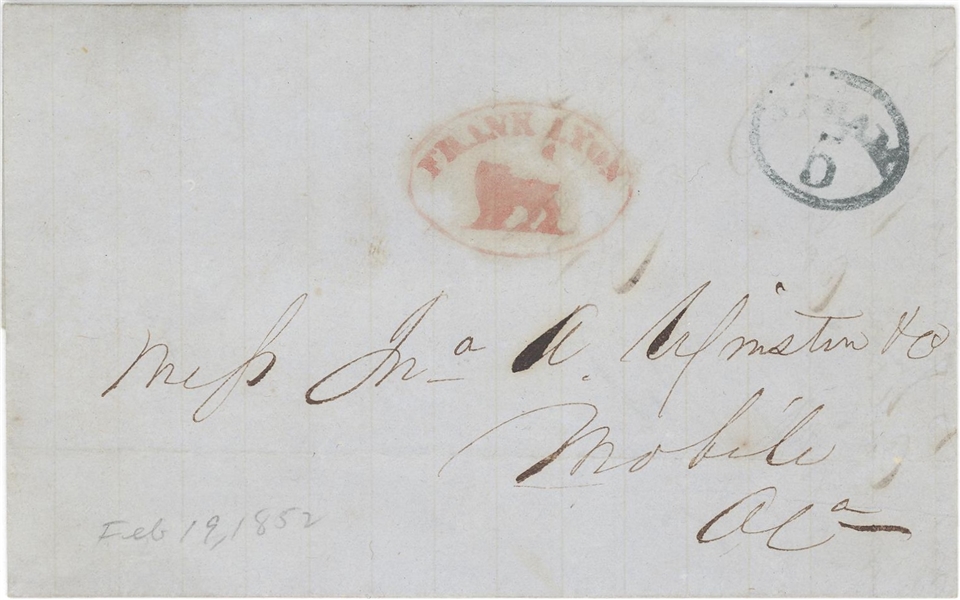 FRANK LYON
5
Mess Jno A. Winston & Co
Mobile
Ala
Feb 19, 1852